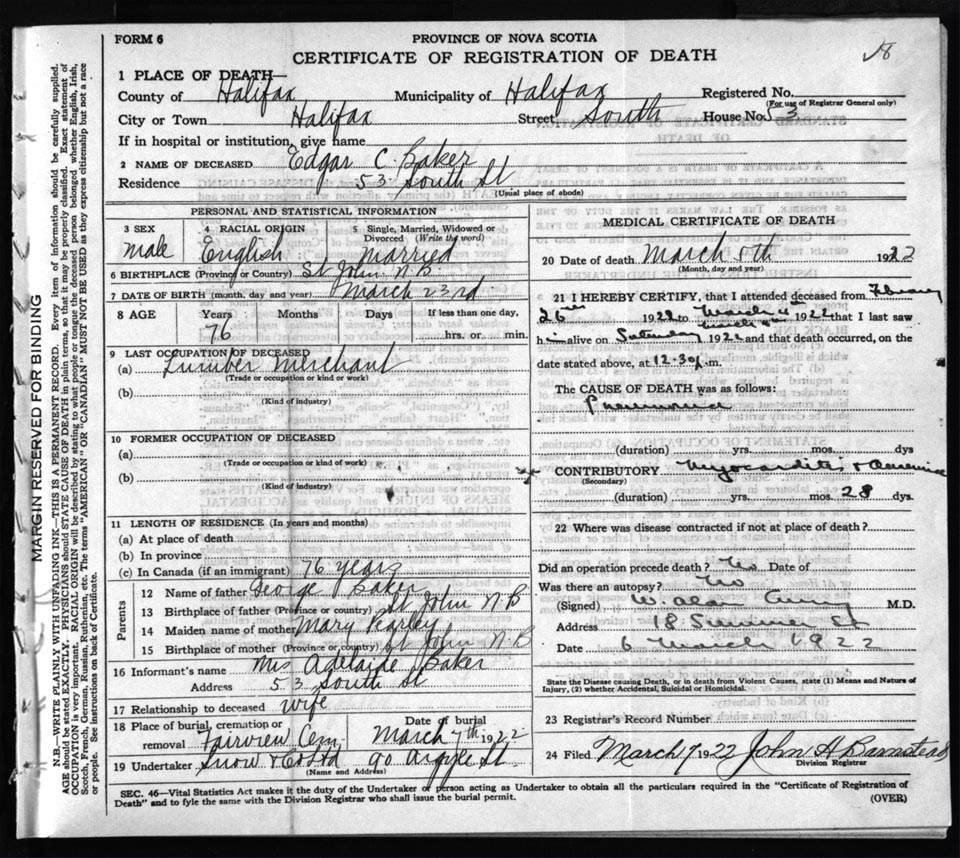 FORM 6
PROVINCE OF NOVA SCOTIA
CERTIFICATE OF REGISTRATION OF DEATH
1 PLACE OF DEATH—
County of Halifax Municipality of Halifax Registered No.
(For use of Registrar General only)
City or Town Halifax Street South House No. 53
If in hospital or institution, give name
2 NAME OF DECEASED Edgar C. Baker
Residence 53 South St
(Usual place of abode)
PERSONAL AND STATISTICAL INFORMATION
3 SEX 4 RACIAL ORIGIN 5 Single, Married, Widowed or Divorced (Write the word)
male English Married
6 BIRTHPLACE (Province or Country) St John N.B.
7 DATE OF BIRTH (month, day and year) March 23rd
8 AGE Years Months Days If less than one day,
76 hrs. or min.
9 LAST OCCUPATION OF DECEASED
(a) Lumber Merchant
(Trade or occupation or kind or work)
(b)
(Kind of industry)
10 FORMER OCCUPATION OF DECEASED
(a)
(Trade or occupation or kind or work)
(b)
(Kind of industry)
11 LENGTH OF RESIDENCE (In years and months)
(a) At place of death
(b) In province
(c) In Canada (if an immigrant) 76 years
Parents
12 Name of father George Baker
13 Birthplace of father (Province or country) St John N B
14 Maiden name of mother Mary
15 Birthplace of mother (Province or country) St John N.B
16 Informant's name Mrs Adelaide Baker
Address 53 South St
17 Relationship to deceased wife
18 Place of burial, cremation or removal Fairview Cem Date of burial March 7th 1922
19 Undertaker Snow & 90 Argyle St
(Name and Address)
MEDICAL CERTIFICATE OF DEATH
20 Date of death March 5th 1922
(Month, day and year)
21 I HEREBY CERTIFY, that I attended deceased from
26th 1922 to March 4th 1922 that I last saw
him alive on Saturday March 1922 and that death occurred, on the
date stated above, at 12.30 m.
The CAUSE OF DEATH was as follows:
Pneumonia
(duration) yrs. mos. dys
CONTRIBUTORY Myocarditis &
(Secondary)
(duration) yrs. mos. 28 dys.
22 Where was disease contracted if not at place of death?
Did an operation precede death? No Date of
Was there an autopsy? No
(Signed) W. Alan M.D.
Address 18 Summer St
Date 6 March 1922
State the Disease causing Death, or in death from Violent Causes, state (1) Means and Nature of
Injury, (2) whether Accidental, Suicidal or Homicidal.
23 Registrar's Record Number
24 Filed March 7 1922 John H Barnstead
Division Registrar
SEC. 46—Vital Statistics Act makes it the duty of the Undertaker or person acting as Undertaker to obtain all the particulars required in the "Certificate of Registration of
Death" and to fyle the same with the Division Registrar who shall issue the burial permit.
(OVER)
MARGIN RESERVED FOR BINDING
N.B.—WRITE PLAINLY WITH UNFADING INK—THIS IS A PERMANENT RECORD. Every item of information should be carefully supplied.
AGE should be stated EXACTLY. PHYSICIANS should STATE CAUSE OF DEATH in plain terms, so that it may be properly classified. Exact statement of
OCCUPATION is very important. RACIAL ORIGIN will be described by stating to what people or tongue the deceased person belonged whether English, Irish,
Scotch, French, German, Russian, Ruthenian, etc. The terms "AMERICAN" OR "CANADIAN" MUST NOT BE USED as they express citizenship but not a race
or people. See instructions on back of Certificate.